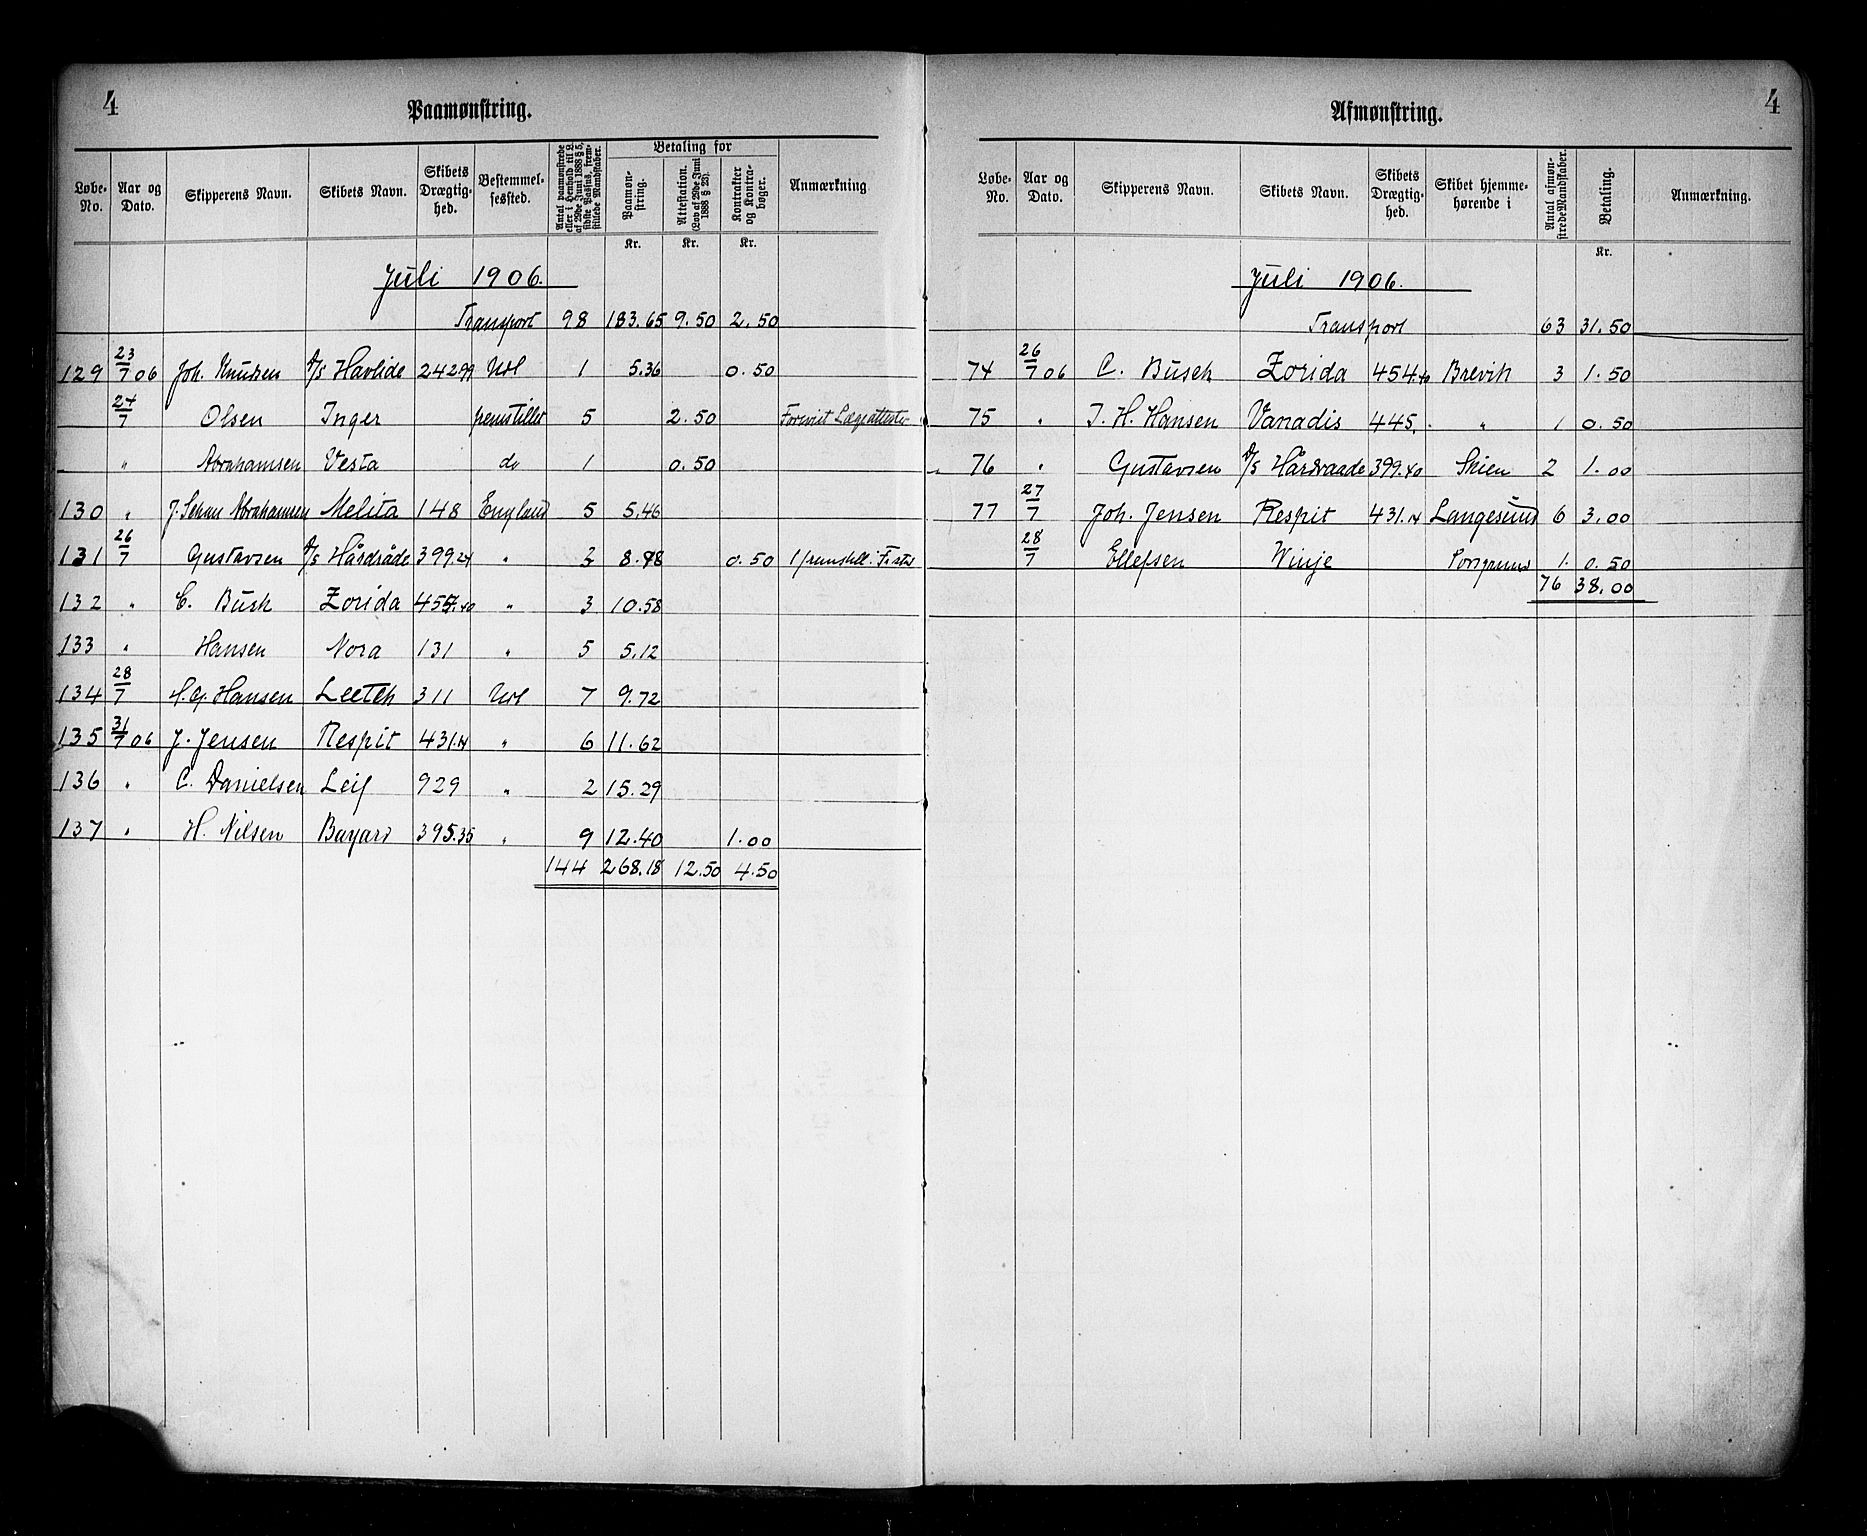 4
Paamønstring.
Løbe-No. | Aar og Dato. | Skipperens Navn. | Skibets Navn. | Skibets Drægtig-hed. | Bestemmel-sessted. | Antal paamønstrede eller i Henhold til L. af 29de Juni 1888 § 5, sidste Passus, frem-stillede Mandskaber. | Betaling for | Paamøn-string. | Attestation. (Lov af 29de Juni 1888 § 23). | Kontrakter og Kontra-bøger. | Anmærkning
Kr. | Kr. | Kr.
Juli 1906.
Transport 98 183.65 9.50 2.50
129 23/7 06 Joh. Knudsen A/S Havlide 242.99 Udl 1 5.36 0.50
24/7 Olsen Inger fremstillet 5 2.50
" Abrahamsen Vesta do 1 0.50
130 " Abrahamsen Melita 148 England 5 5.46
131 26/7 Gustavsen A/S Hårdråde 399.24 " 2 8.48 0.50
132 " C. Bush Zorida 454.40 " 3 10.58
133 " Hansen Nora 131 " 5 5.12
134 28/7 H. G. Hansen Leetch 311 Udl 7 9.72
135 31/7 06 J. Jensen Respit 431.14 " 6 11.62
136 " C. Danielsen Leif 929 " 2 15.29
137 " H. Nilsen Bayard 395.35 " 9 12.40 1.00
144 268.18 12.50 4.50
4
Afmønstring.
Løbe-No. | Aar og Dato. | Skipperens Navn. | Skibets Navn. | Skibets Drægtig-hed. | Skibet hjemme-hørende i | Antal afmøn-strede Mandskaber. | Betaling. | Anmærkning.
Kr.
Juli 1906.
Transport 63 31.50
74 26/7 06 C. Busch Zorida 454.40 Brevik 3 1.50
75 " J. H. Hansen Vanadis 445. " 1 0.50
76 " Gustavsen A/S Hårdraade 399.40 Skien 2 1.00
77 27/7 Joh. Jensen Respit 431.14 Langesund 6 3.00
28/7 Ellefsen Winje Porsgrund 1. 0.50
76 38.00